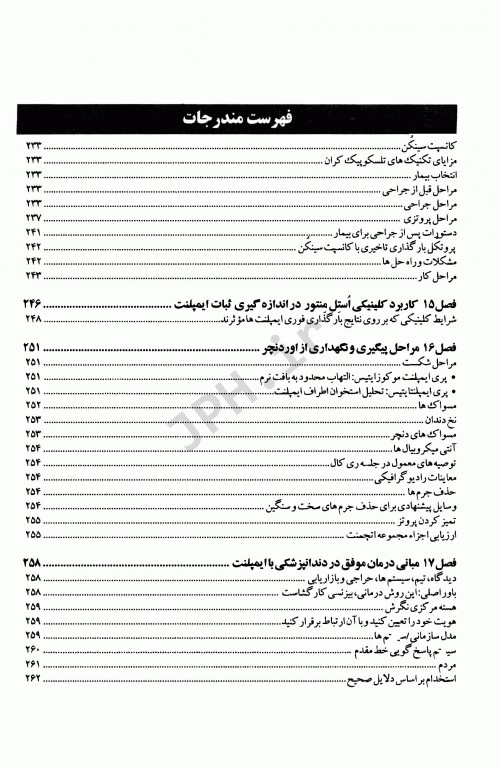 فهرست مندرجات
کانسپت سینکُن ۲۳۳
مزایای تکنیک های تلسکوپیک کران ۲۳۳
انتخاب بیمار ۲۳۳
مراحل قبل از جراحی ۲۳۳
مراحل جراحی ۲۳۳
مراحل پروتزی ۲۳۷
دستورات پس از جراحی برای بیمار ۲۴۱
پروتکُل بارگذاری تاخیری با کانسپت سینکُن ۲۴۲
مشکلات و راه حل ها ۲۴۲
مراحل کار ۲۴۳
فصل ۱۵ کاربرد کلینیکی اُستِل مِنتور در اندازه گیری ثبات ایمپلنت ۲۴۶
شرایط کلینیکی که بر روی نتایج بارگذاری فوری ایمپلنت ها مؤثرند ۲۴۸
فصل ۱۶ مراحل پیگیری و نگهداری از اوردنچر ۲۵۱
مراحل شکست ۲۵۱
• پری ایمپلنت موکوزایتیس: التهاب محدود به بافت نرم ۲۵۱
• پری ایمپلنتایتیس: تحلیل استخوان اطراف ایمپلنت ۲۵۱
مسواک ها ۲۵۲
نخ دندان ۲۵۳
مسواک های دنچر ۲۵۳
آنتی میکروبیال ها ۲۵۴
توصیه های معمول در جلسه ری کال ۲۵۴
معاینات رادیوگرافیکی ۲۵۴
حذف جرم ها ۲۵۴
وسایل پیشنهادی برای حذف جرم های سخت و سنگین ۲۵۴
تمیز کردن پروتز ۲۵۵
ارزیابی اجزاء مجموعه اتچمنت ۲۵۵
فصل ۱۷ مبانی درمان موفق در دندانپزشکی با ایمپلنت ۲۵۸
دیدگاه، تیم، سیستم ها، حراجی و بازاریابی ۲۵۸
باور اصلی: این روش درمانی، بیزنسی کارگشاست ۲۵۸
هسته مرکزی نگرش ۲۵۹
هویت خود را تعیین کنید و با آن ارتباط برقرار کنید ۲۵۹
مدل سازمانی ۲۵۹
پاسخ گویی خط مقدم ۲۶۰
مردم ۲۶۱
استخدام بر اساس دلایل صحیح ۲۶۲
JPH.ir